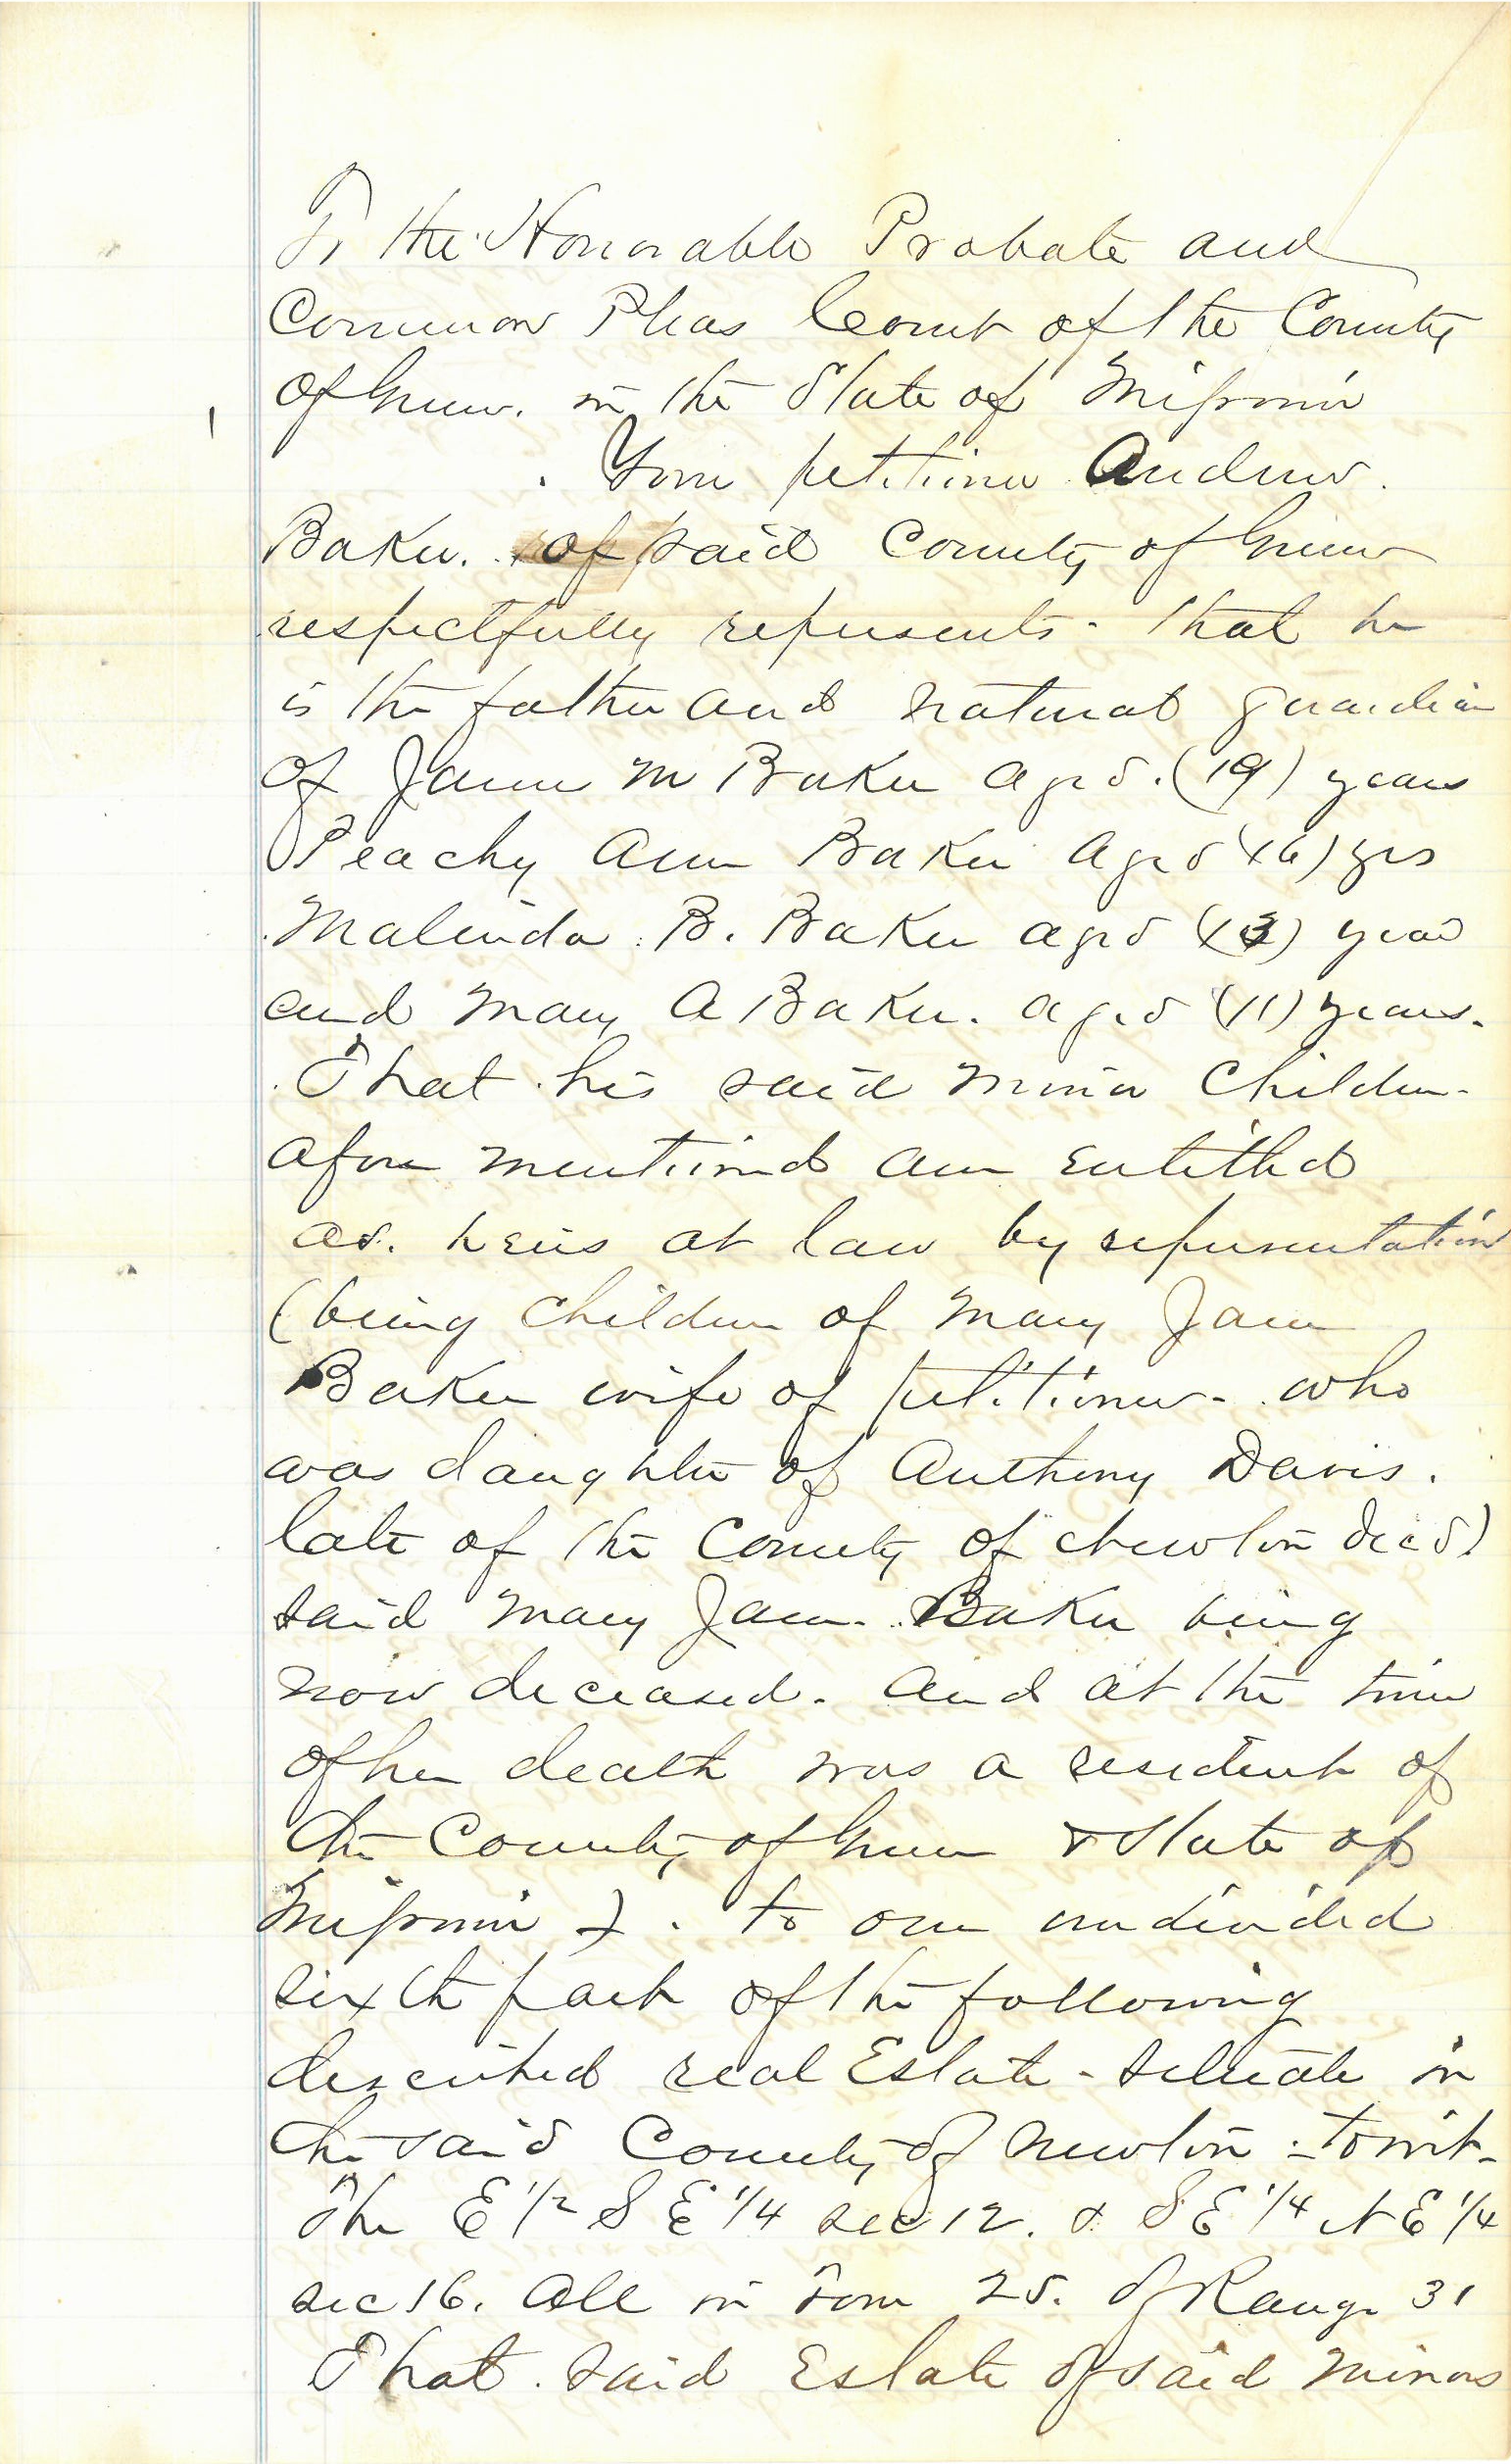 To the Honorable Probate and
Common Pleas Court of the County
of Greene. in the State of Missouri
Your petitioner Andrew
Baker. of said County of Greene
respectfully represents - That he
is the father and natural guardian
of James M Baker aged (19) years
Peachy Ann Baker aged (16) yrs
Malinda B. Baker aged (13) years
and Mary A Baker. aged (11) years.
That his said minor Children
afore mentioned are entitled
as. heirs at law by representation
(being children of Mary Jane
Baker wife of petitioner - who
was daughter of Anthony Davis.
late of the County of Newton decd)
said Mary Jane Baker being
now deceased. and at the time
of her death was a resident of
the County of Greene & State of
Missouri ). to one undivided
sixth part of the following
described real Estate - situate in
the said County of Newton - to wit -
The E 1/2 S E 1/4 sec 12. & S E 1/4 N E 1/4
sec 16. All in Town 25. of Range 31
That said Estate of said minors